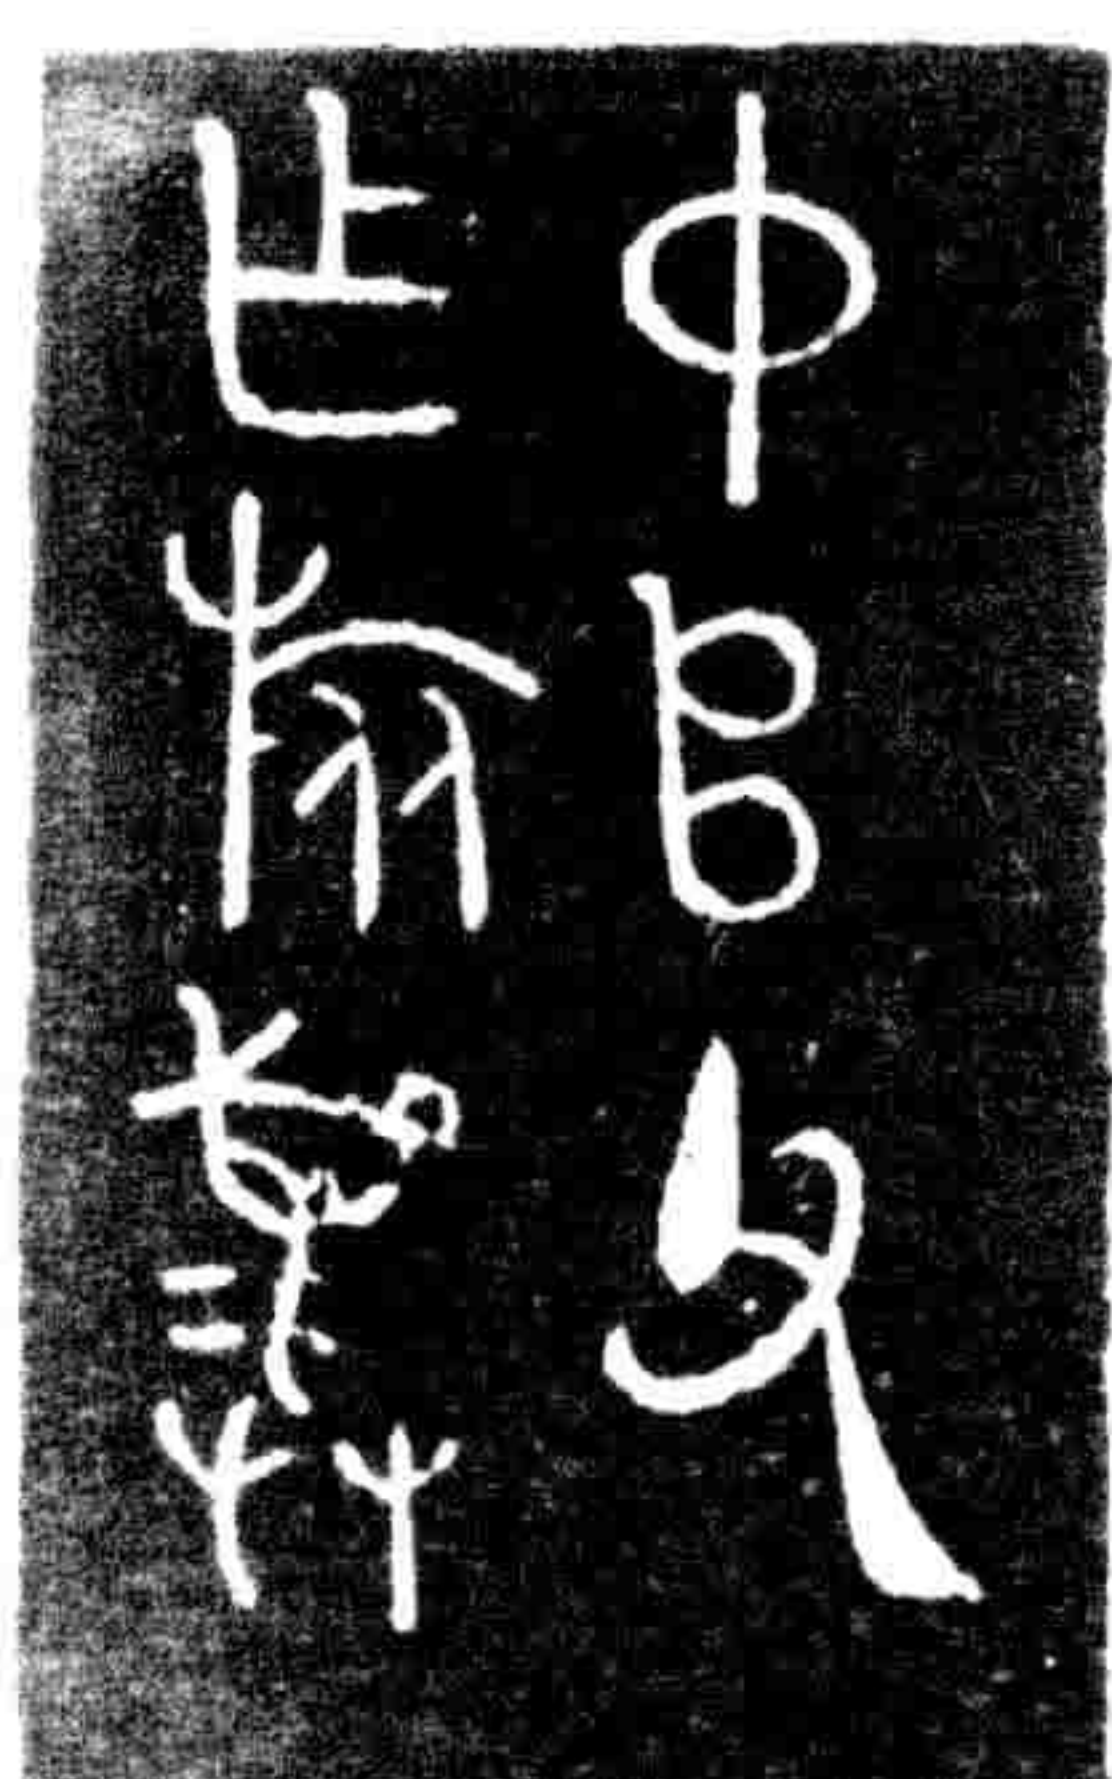 中𠂤父
乍旅彝